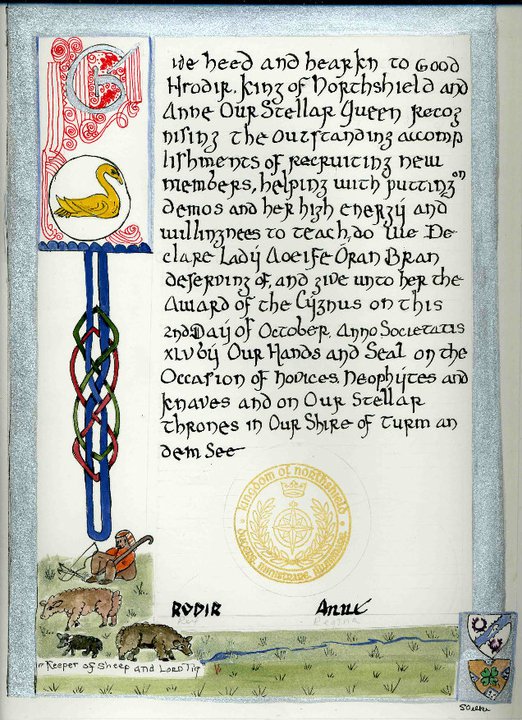 We heed and hearkn to Good
Hrodir, King of Northshield and
Anne Our Stellar Queen recog
nising the outstanding accomp
lishments of recruiting new
members, helping with putting on
demos and her high energy and
willingnees to teach, do We De
clare Lady Aoeife Oran Bran
deserving of, and give unto her the
Award of the Cygnus on this
2nd Day of October, Anno Societatis
XLV by Our Hands and Seal on the
Occasion of Novices, Neophytes and
Knaves and on Our Stellar
Thrones in Our Shire of Turm an
dem See
Kingdom of Northshield
RODIR Anne
Rex Regina
Keeper of Sheep and Lord